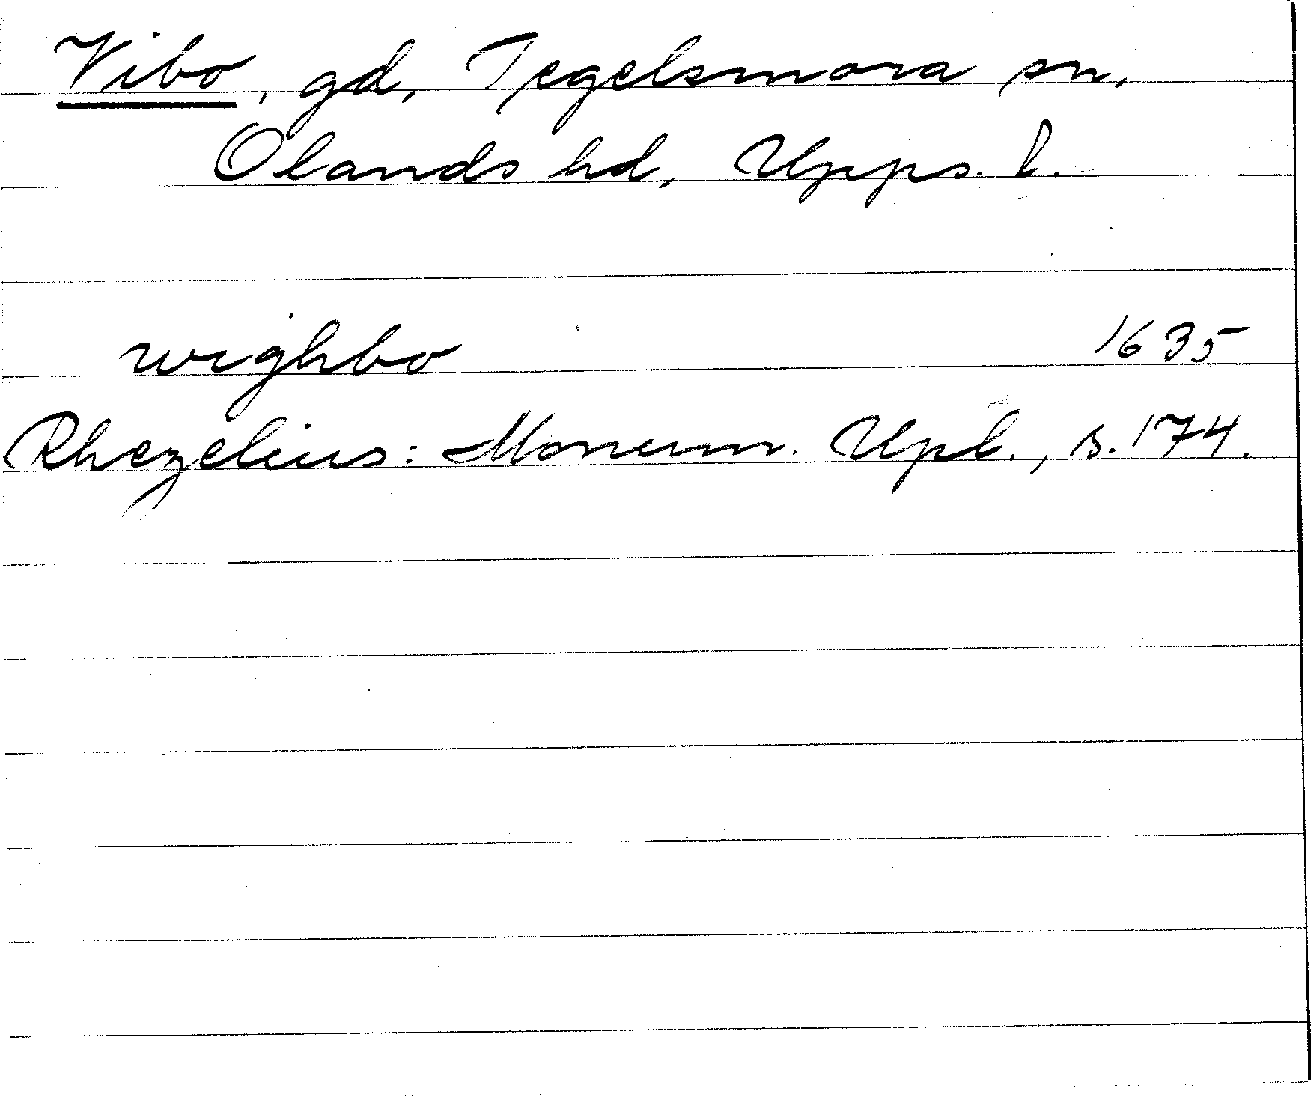 Vibo, gd, Tegelsmora sn,
Olands hd, Upps. l.
wighbo 1635
Rhezelius: Monum. Upl., s. 174.